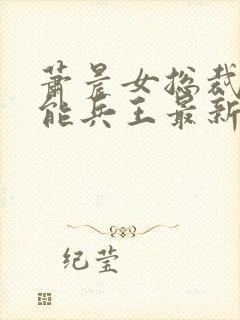 萧晨女总裁
能兵王最新
纪莹